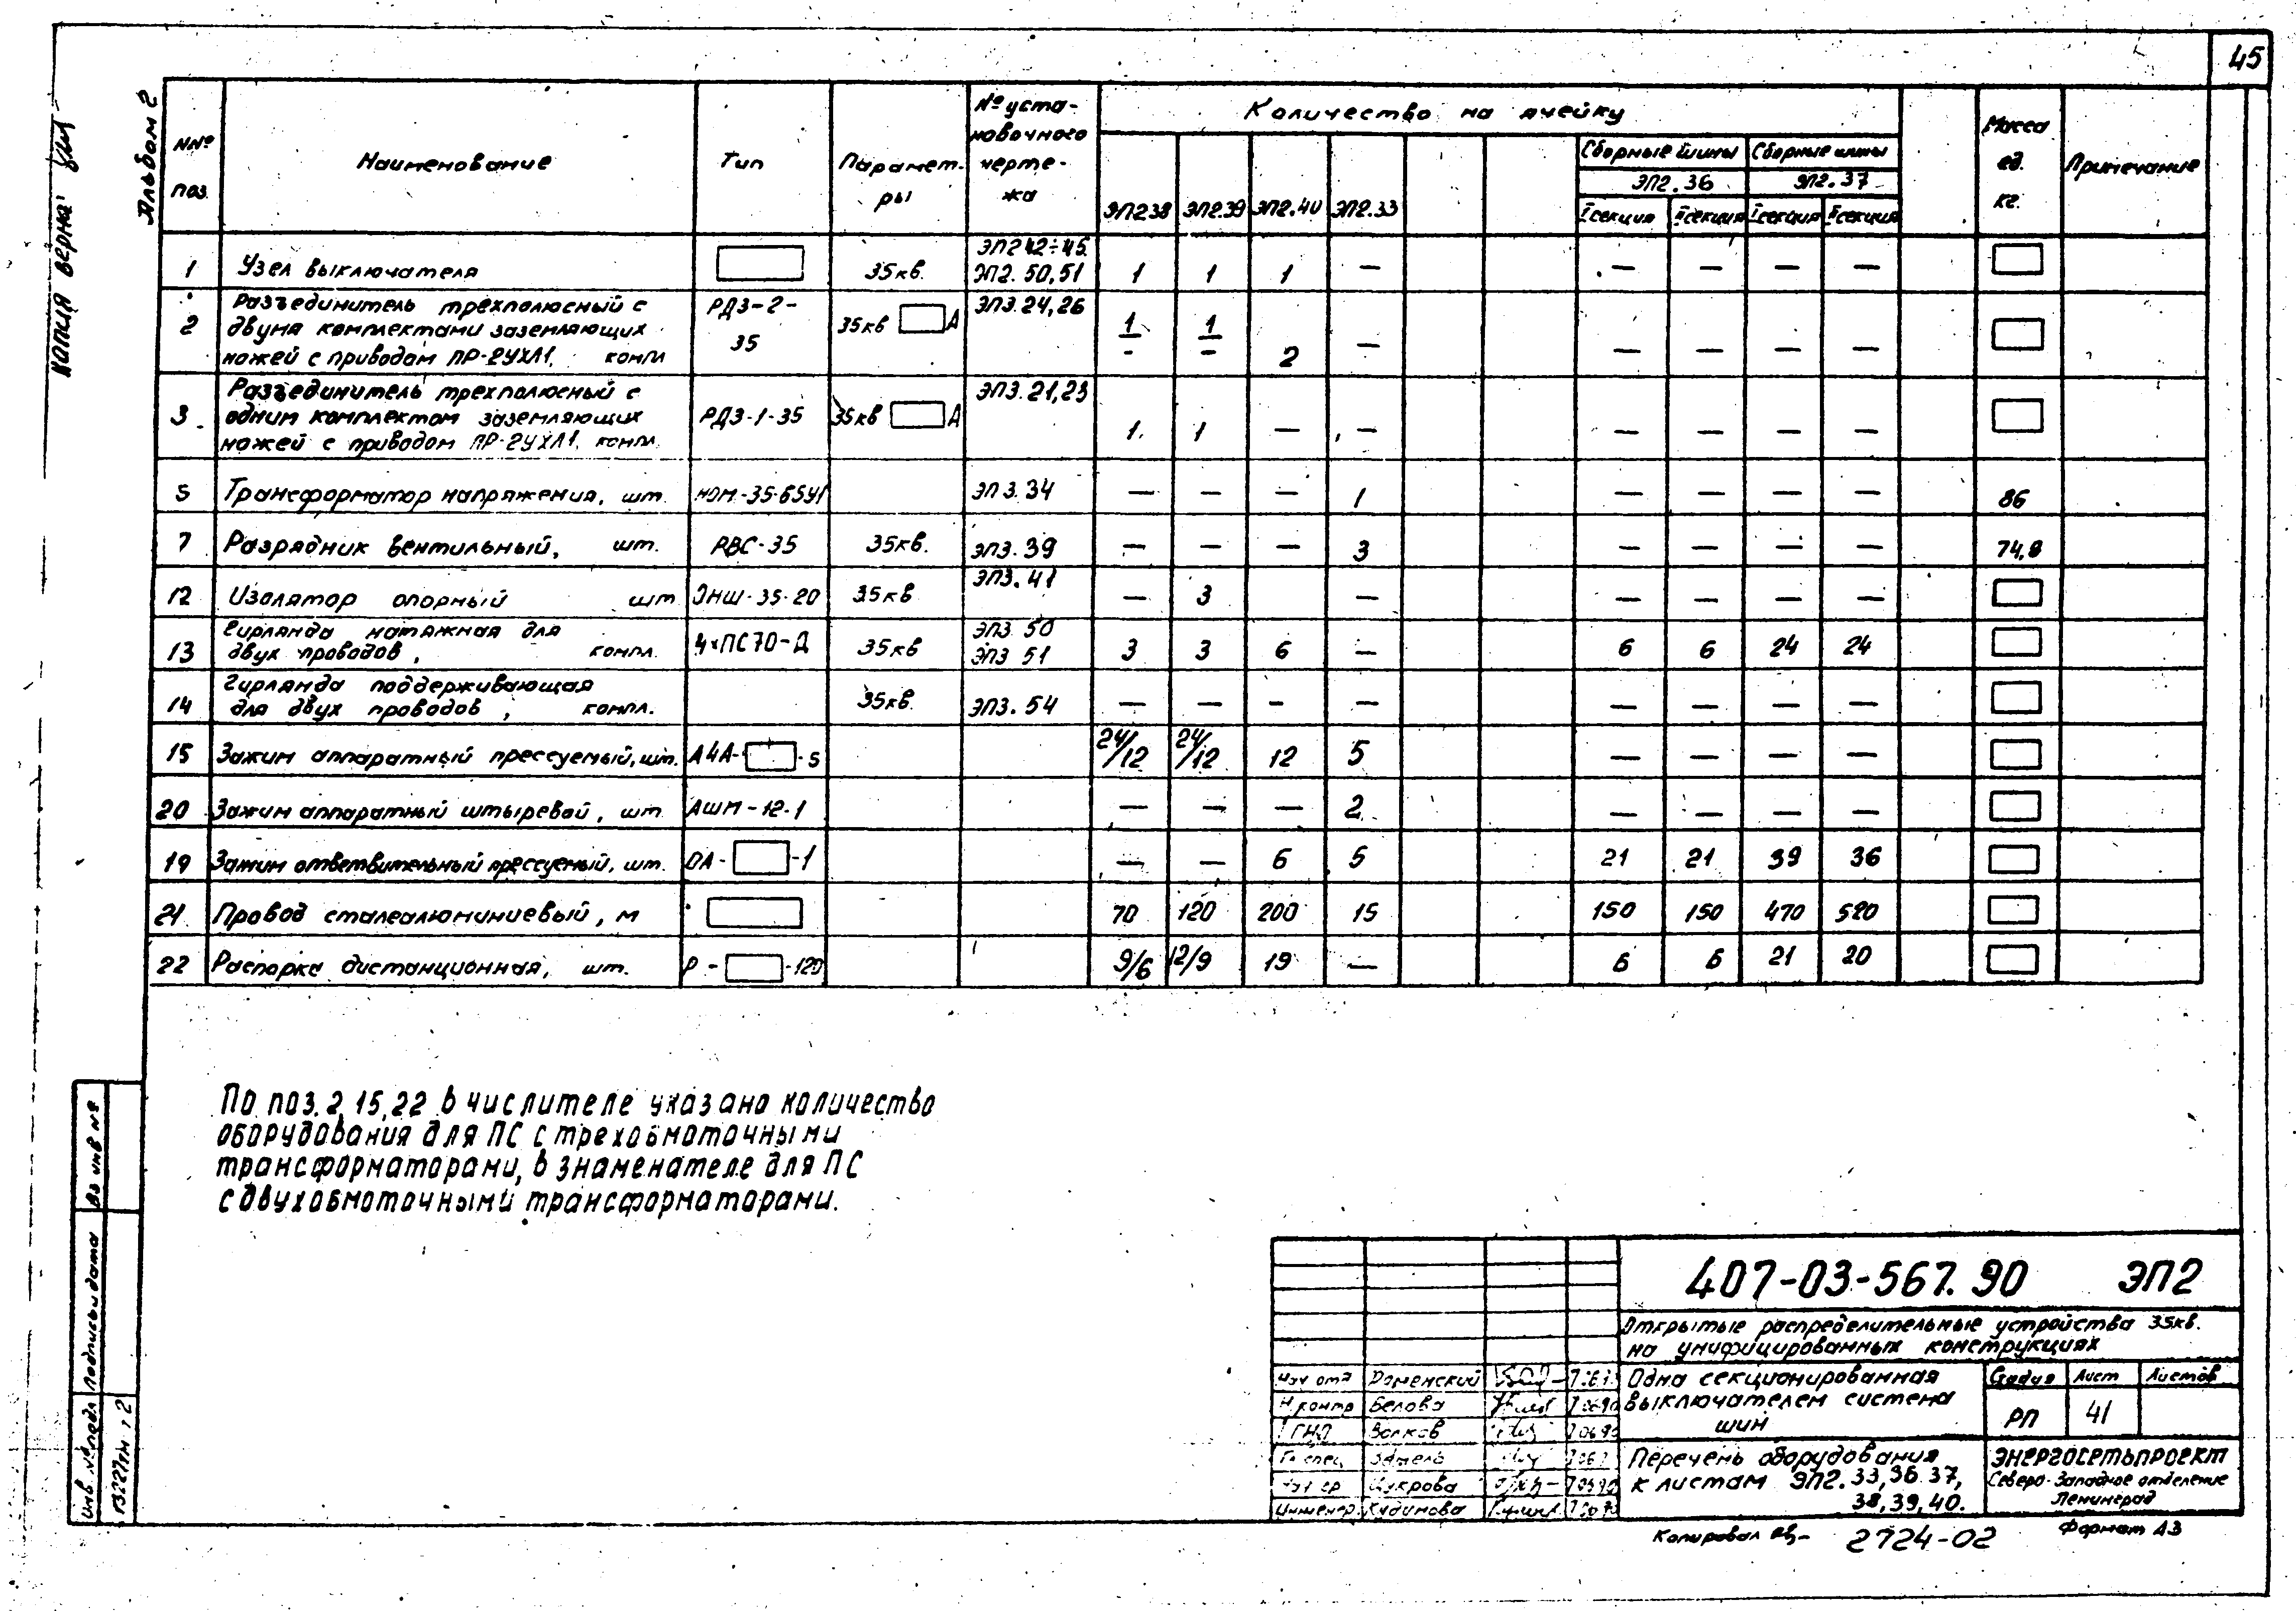 45
Альбом 2
Копия верна:
NNº поз.
Наименование
Тип
Парамет-ры
Nº уста-новочного черте-жа
Количество на ячейку
ЭП2.38 ЭП2.39 ЭП2.40 ЭП2.33
Сборные шины ЭП2.36
Сборные шины ЭП2.37
I секция II секция I секция II секция
Масса ед. кг.
Примечание
1 Узел выключателя 35кв. ЭП2 42÷45 ЭП2.50,51 1 1 1 — — — — —
2 Разъединитель трехполюсный с двумя комплектами заземляющих ножей с приводом ПР-2УХЛ1, компл РДЗ-2-35 35кв А ЭП3.24,26 1/- 1/- 2 — — — — —
3 Разъединитель трехполюсный с одним комплектом заземляющих ножей с приводом ПР-2УХЛ1, компл. РДЗ-1-35 35кв А ЭП3.21,23 1 1 — — — — — —
5 Трансформатор напряжения, шт. НОМ-35-65У1 ЭП3.34 — — — 1 — — — — 86
7 Разрядник вентильный, шт. РВС-35 35кв. ЭП3.39 — — — 3 — — — — 74,8
12 Изолятор опорный шт ОНШ-35-20 35кв ЭП3.41 — 3 — — — — —
13 Гирлянда натяжная для двух проводов, компл. 4хПС70-Д 35кв ЭП3 50 ЭП3 51 3 3 6 — 6 6 24 24
14 Гирлянда поддерживающая для двух проводов, компл. 35кв. ЭП3.54 — — — — — — — —
15 Зажим аппаратный прессуемый, шт. А4А- -5 24/12 24/12 12 5 — — — —
20 Зажим аппаратный штыревой, шт АШМ-12-1 — — — 2 — — — —
19 Зажим ответвительный прессуемый, шт. ОА- -1 — — 6 5 21 21 39 36
21 Провод сталеалюминиевый, м 70 120 200 15 150 150 470 520
22 Распорка дистанционная, шт. Р- -120 9/6 12/9 19 — 6 6 21 20
По поз. 2, 15, 22 в числителе указано количество
оборудования для ПС с трехобмоточными
трансформаторами, в знаменателе для ПС
с двухобмоточными трансформаторами.
Вз инв Nº
Подпись и дата
Инв. Nº подл
13227тм т 2
407-03-567.90 ЭП2
Открытые распределительные устройства 35кв.
на унифицированных конструкциях
Нач отд Роменский
Н.контр Белова
ГИП Волков
Гл спец
Нач гр
Инженер
Одна секционированная
выключателем система
шин
Стадия Лист Листов
РП 41
Перечень оборудования
к листам ЭП2.33,36,37,
38,39,40.
ЭНЕРГОСЕТЬПРОЕКТ
Северо-Западное отделение
Ленинград
Копировал
2724-02
Формат А3